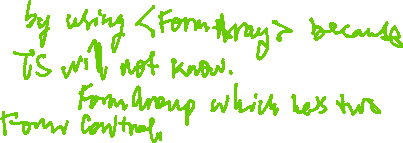 by using <FormArray> because
TS will not know.
FormGroup which has two
Form Controls